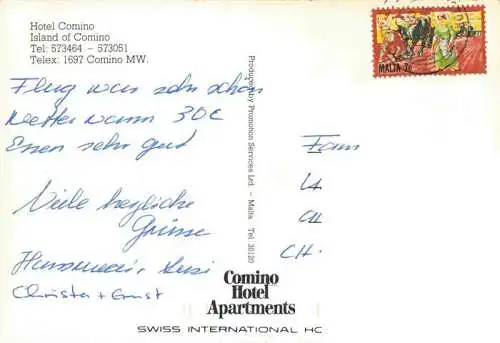 Hotel Comino
Island of Comino
Tel: 573464 – 573051
Telex: 1697 Comino MW.
MALTA
Flug war sehr schön
Wetter warm 30C
Essen sehr gut
Viele herzliche
Grüsse
Christa + Ernst
Produced by Promotion Services Ltd. – Malta Tel 30120
Fam
CH
CH.
Comino
Hotel
Apartments
SWISS INTERNATIONAL HO